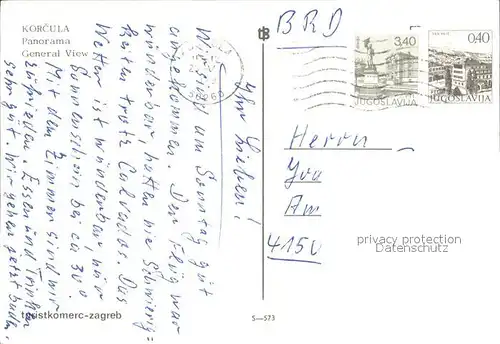 KORČULA
Panorama
General View
BRD
3,40
JUGOSLAVIJA
0,40
JUGOSLAVIJA
Ihr Lieben!
Wir sind am Sonntag gut
angekommen. Der Flug war
wunderbar, hatten nie Schwierig=
keiten trotz Calvados. Das
Wetter ist wunderbar, nur
Sonnenschein bei ca 30°
Mit dem Zimmer sind wir
zufrieden. Essen und Trinken
sehr gut. Wir gehen jetzt baden.
Herrn
Am
4150
privacy protection
www.ansichtskartenversand.com
turistkomerc-zagreb
S—573